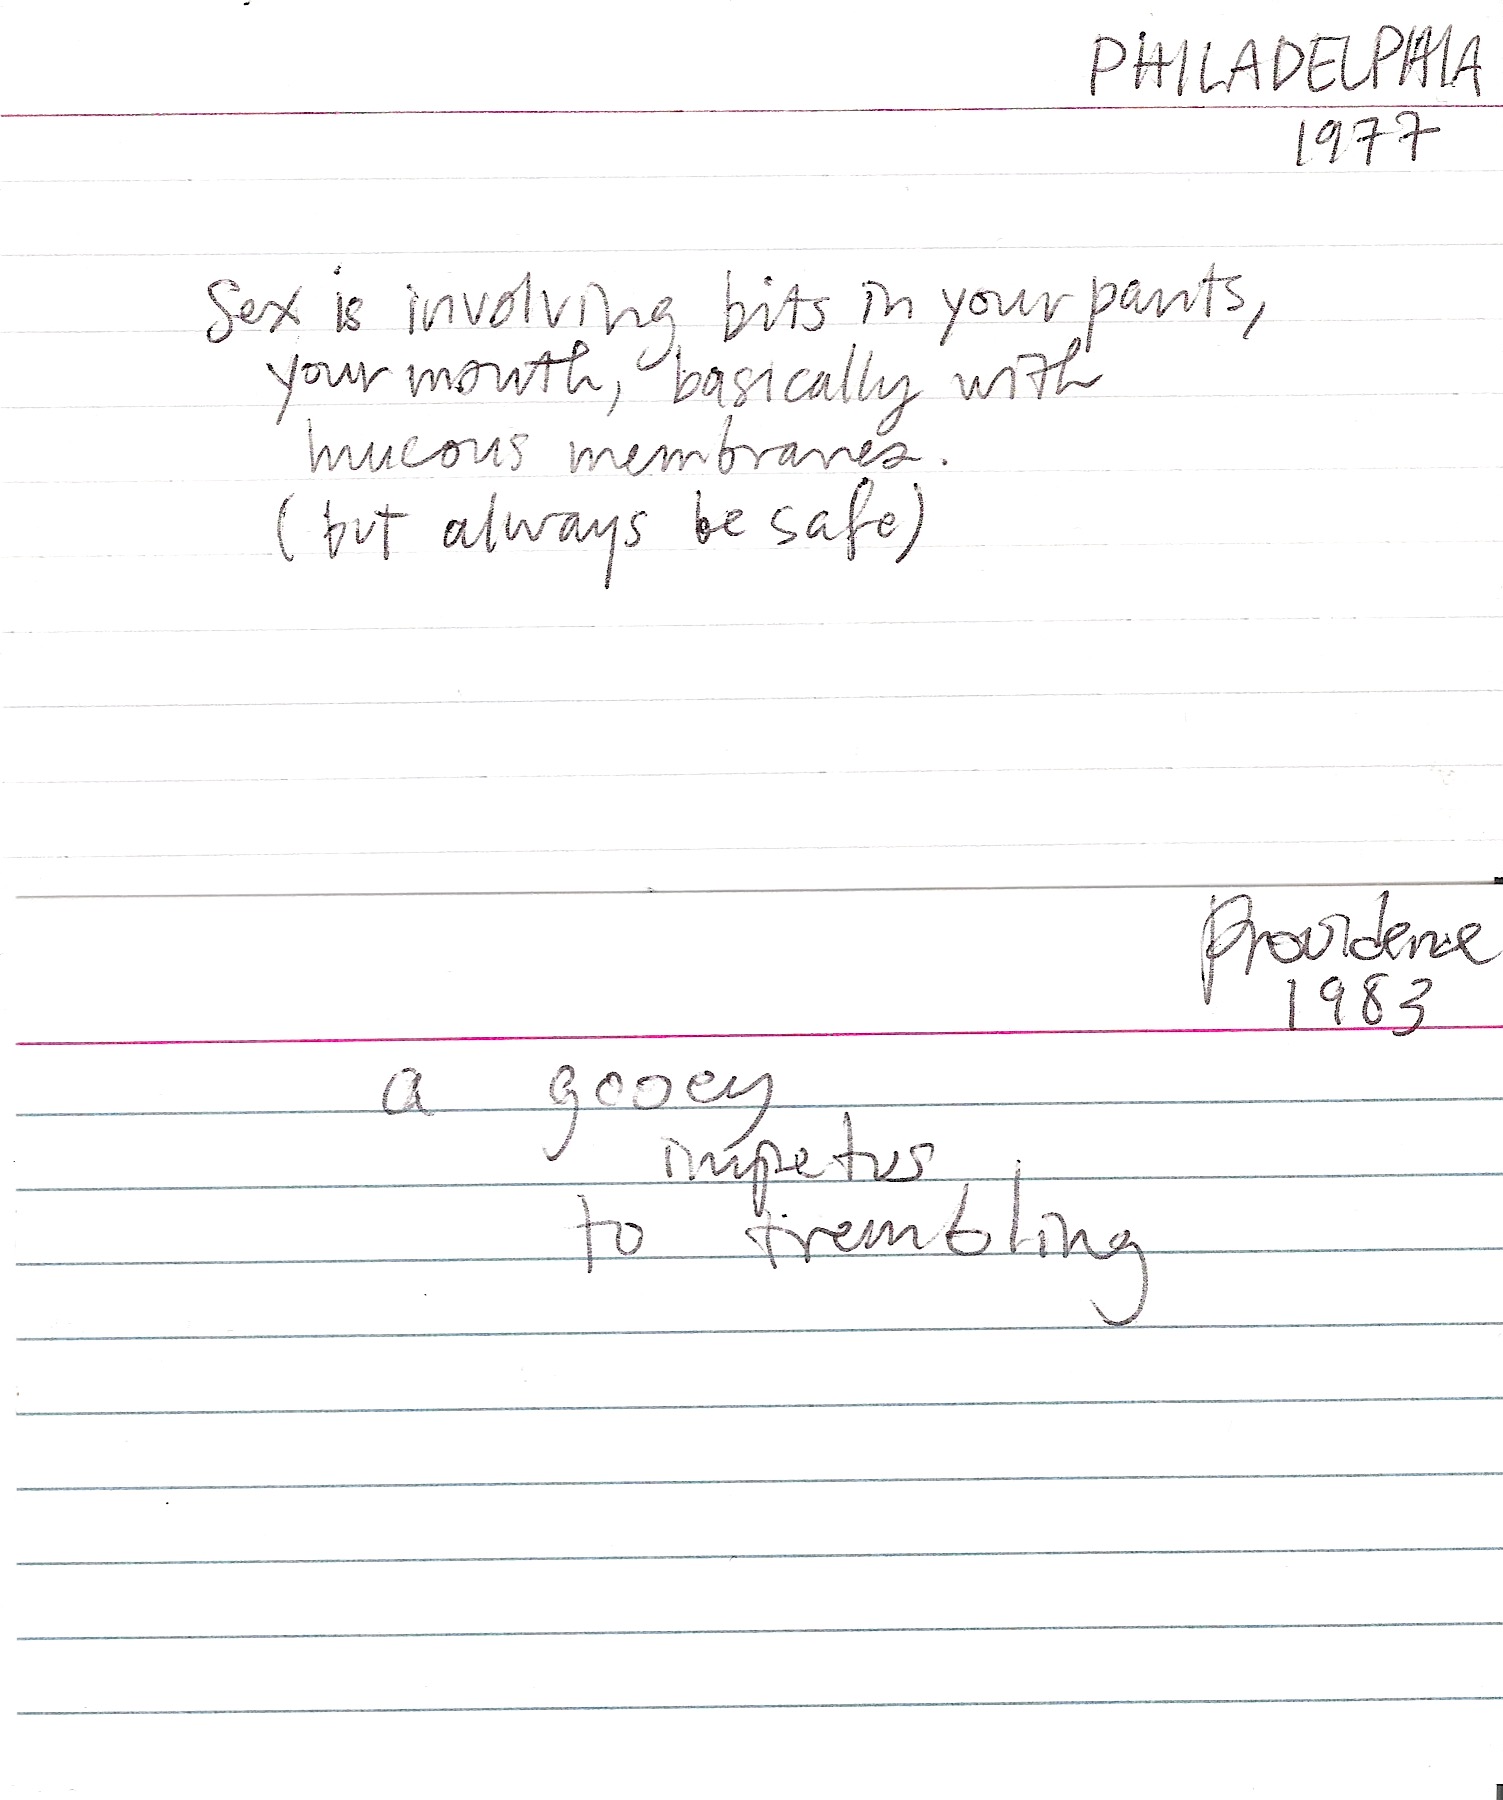 PHILADELPHIA
1977
Sex is involving bits in your pants,
your mouth, basically with
mucous membranes.
(but always be safe)
Providence
1983
a gooey
impetus
to trembling